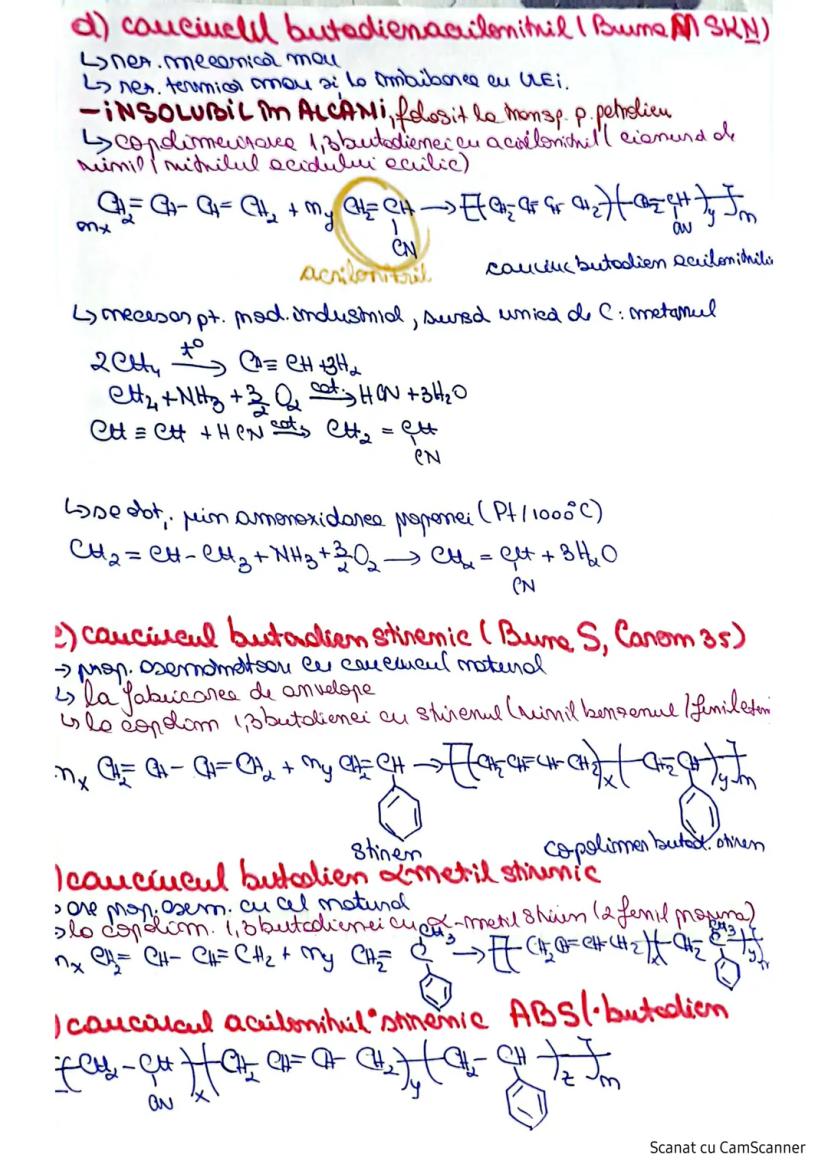 d) cauciucul butadienacrilonitril (Buna N SKN)
↳ rez. mecanică mai
↳ rez. termică mai și la îmbibarea cu ULEi.
- iNSOLUBiL în ALCANi, folosit la transp. p. petrolieu
↳ copolimerizarea 1,3 butadienei cu acrilonitril (cianură de
vinil / nitrilul acidului acrilic)
nx CH2 = CH - CH = CH2 + ny CH2 = CH → [(CH2 - CH = CH - CH2)x (CH2 - CH)y]n
CN CN
acrilonitril cauciuc butadien acrilonitrilic
↳ necesar pt. prod. industrial, sursă unică de C: metanul
2CH4 t° → CH ≡ CH + 3H2
CH4 + NH3 + 3/2 O2 cat. → HCN + 3H2O
CH ≡ CH + HCN cat. → CH2 = CH
CN
↳ se obț. prin amonoxidarea propenei (Pt/1000°C)
CH2 = CH - CH3 + NH3 + 3/2 O2 → CH2 = CH + 3H2O
CN
e) cauciucul butadien stirenic (Buna S, Carom 35)
→ prop. asemănătoare cu cauciucul natural
↳ la fabricarea de anvelope
↳ la copolim 1,3 butadienei cu stirenul (vinil benzenul / fenileten
nx CH2 = CH - CH = CH2 + ny CH2 = CH → [(CH2 - CH = CH - CH2)x (CH2 - CH)y]n
stiren copolimer butad. stiren
) cauciucul butadien α-metil stirenic
→ are prop. asem. cu cel natural
→ la copolim. 1,3 butadienei cu α-metil stiren (2 fenil propenă)
CH3 CH3
nx CH2 = CH - CH = CH2 + ny CH2 = C → [(CH2 CH = CH - CH2)x (CH2 - C)y]n
) cauciucul acrilonitril stirenic ABS (· butadien
[(CH2 - CH)x (CH2 CH = CH - CH2)y (CH2 - CH)z]n
CN
Scanat cu CamScanner